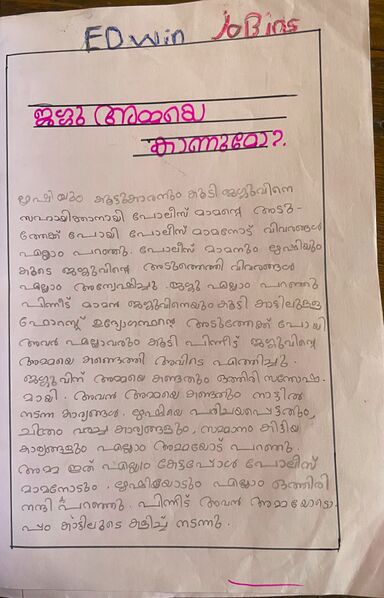 EDwin JoBins
ജുജു അമ്മയെ
കാണുമോ?.
ഋഷിയും കൂട്ടുകാരനും കൂടി ജുജുവിനെ
സഹായിക്കാനായി പോലീസ് മാമന്റെ അടു-
ത്തേക്ക് പോയി പോലീസ് മാമനോട് വിവരങ്ങൾ
എല്ലാം പറഞ്ഞു. പോലീസ് മാമനും ഋഷിയും
കൂടെ ജുജുവിന്റെ അടുത്തെത്തി വിവരങ്ങൾ
എല്ലാം അന്വേഷിച്ചു. ജുജു എല്ലാം പറഞ്ഞു
പിന്നീട് മാമൻ ജുജുവിനെയും കൂട്ടി കാട്ടിലുള്ള
ഫോറസ്റ്റ് ഉദ്യോഗസ്ഥന്റെ അടുത്തേക്ക് പോയി
അവർ എല്ലാവരും കൂടി പിന്നീട് ജുജുവിന്റെ
അമ്മയെ കണ്ടെത്തി അവിടെ എത്തിച്ചു.
ജുജുവിന് അമ്മയെ കണ്ടതും ഒത്തിരി സന്തോഷ-
മായി. അവൻ അമ്മയെ കണ്ടതും നാട്ടിൽ
നടന്ന കാര്യങ്ങൾ. ഋഷിയെ പരിചയപ്പെട്ടതും,
ചിത്രം വരച്ച കാര്യങ്ങളും, സമ്മാനം കിട്ടിയ
കാര്യങ്ങളും എല്ലാം അമ്മയോട് പറഞ്ഞു.
അമ്മ ഇത് എല്ലാം കേട്ടപ്പോൾ പോലീസ്
മാമനോടും. ഋഷിയോടും എല്ലാം ഒത്തിരി
നന്ദി പറഞ്ഞു. പിന്നീട് അവൻ അമ്മയോടൊ-
പ്പം കാട്ടിലൂടെ കളിച്ച് നടന്നു.